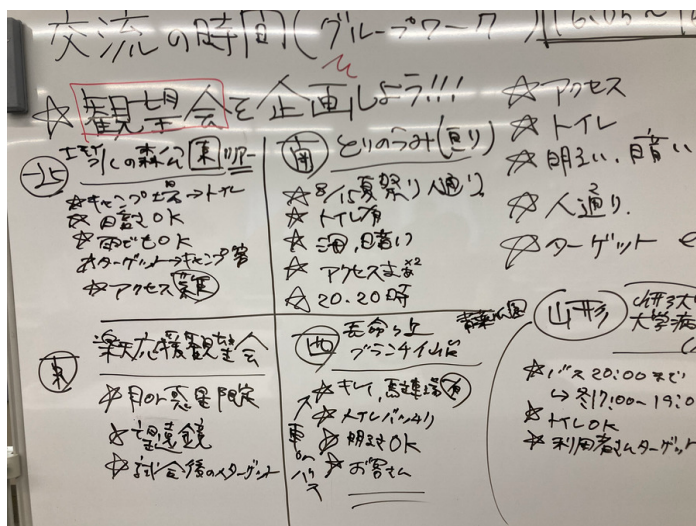 交流の時間(グループワーク) 16:05~1
☆観望会を企画しよう!!!
☆アクセス
☆トイレ
☆明るい、暗い
☆人通り
☆ターゲット
北 の森 東 ツアー
☆キャンプ場→トイレ
☆暗さOK
☆雨でもOK
☆ターゲット→キャンプ客
☆アクセス 難
南 とりのうみ(亘り)
☆8/15夏祭り人通り
☆トイレ有
☆海、暗い
☆アクセスまあ×2
☆20.20時
東 楽天応援観望会
☆月or惑星限定
☆望遠鏡
☆試合後の人ターゲット
西
ブランチ仙台
☆キレイ、 有
☆トイレバッチリ
☆明るさOK
☆お客さん
山形
大学病
☆バス20:00まで
↳冬17:00~19:0
☆トイレOK
☆利用者さんターゲット